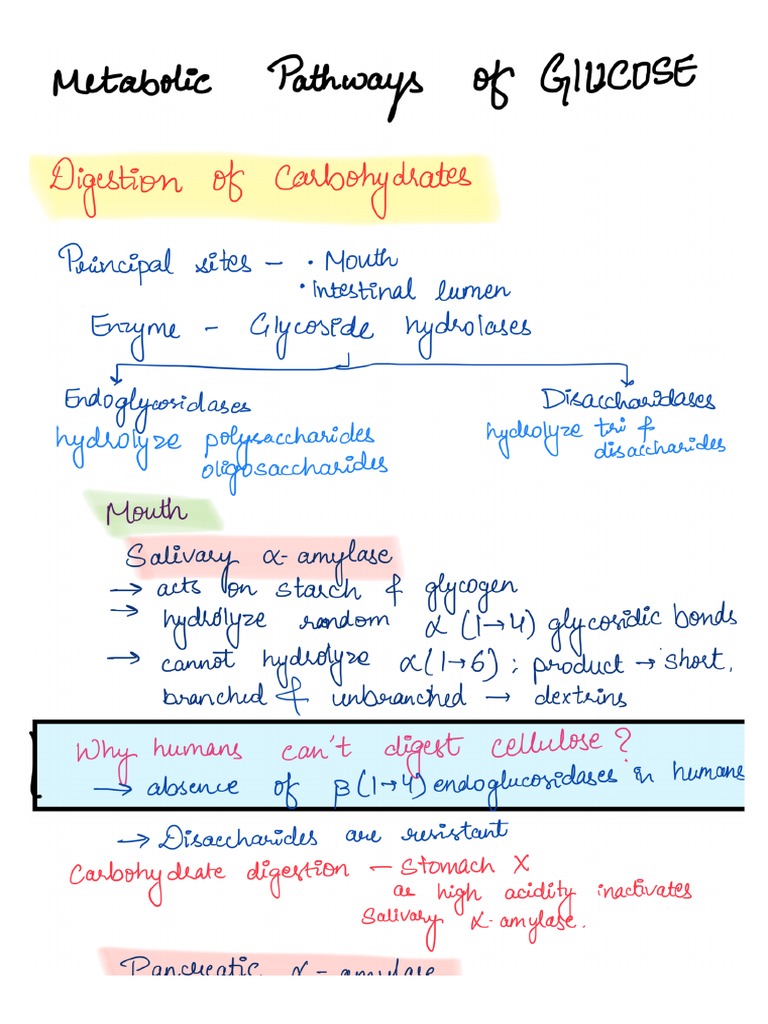 Metabolic Pathways of GLUCOSE
Digestion of Carbohydrates
Principal sites – • Mouth
• Intestinal lumen
Enzyme – Glycoside hydrolases
Endoglycosidases
hydrolyze polysaccharides
oligosaccharides
Disaccharidases
hydrolyze tri &
disaccharides
Mouth
Salivary α-amylase
→ acts on starch & glycogen
→ hydrolyze random α (1→4) glycosidic bonds
→ cannot hydrolyze α(1→6) ; product → short,
branched & unbranched → dextrins
Why humans can't digest cellulose?
→ absence of β(1→4) endoglucosidases in humans
→ Disaccharides are resistant
Carbohydrate digestion – Stomach X
as high acidity inactivates
Salivary α-amylase.
Pancreatic α-amylase